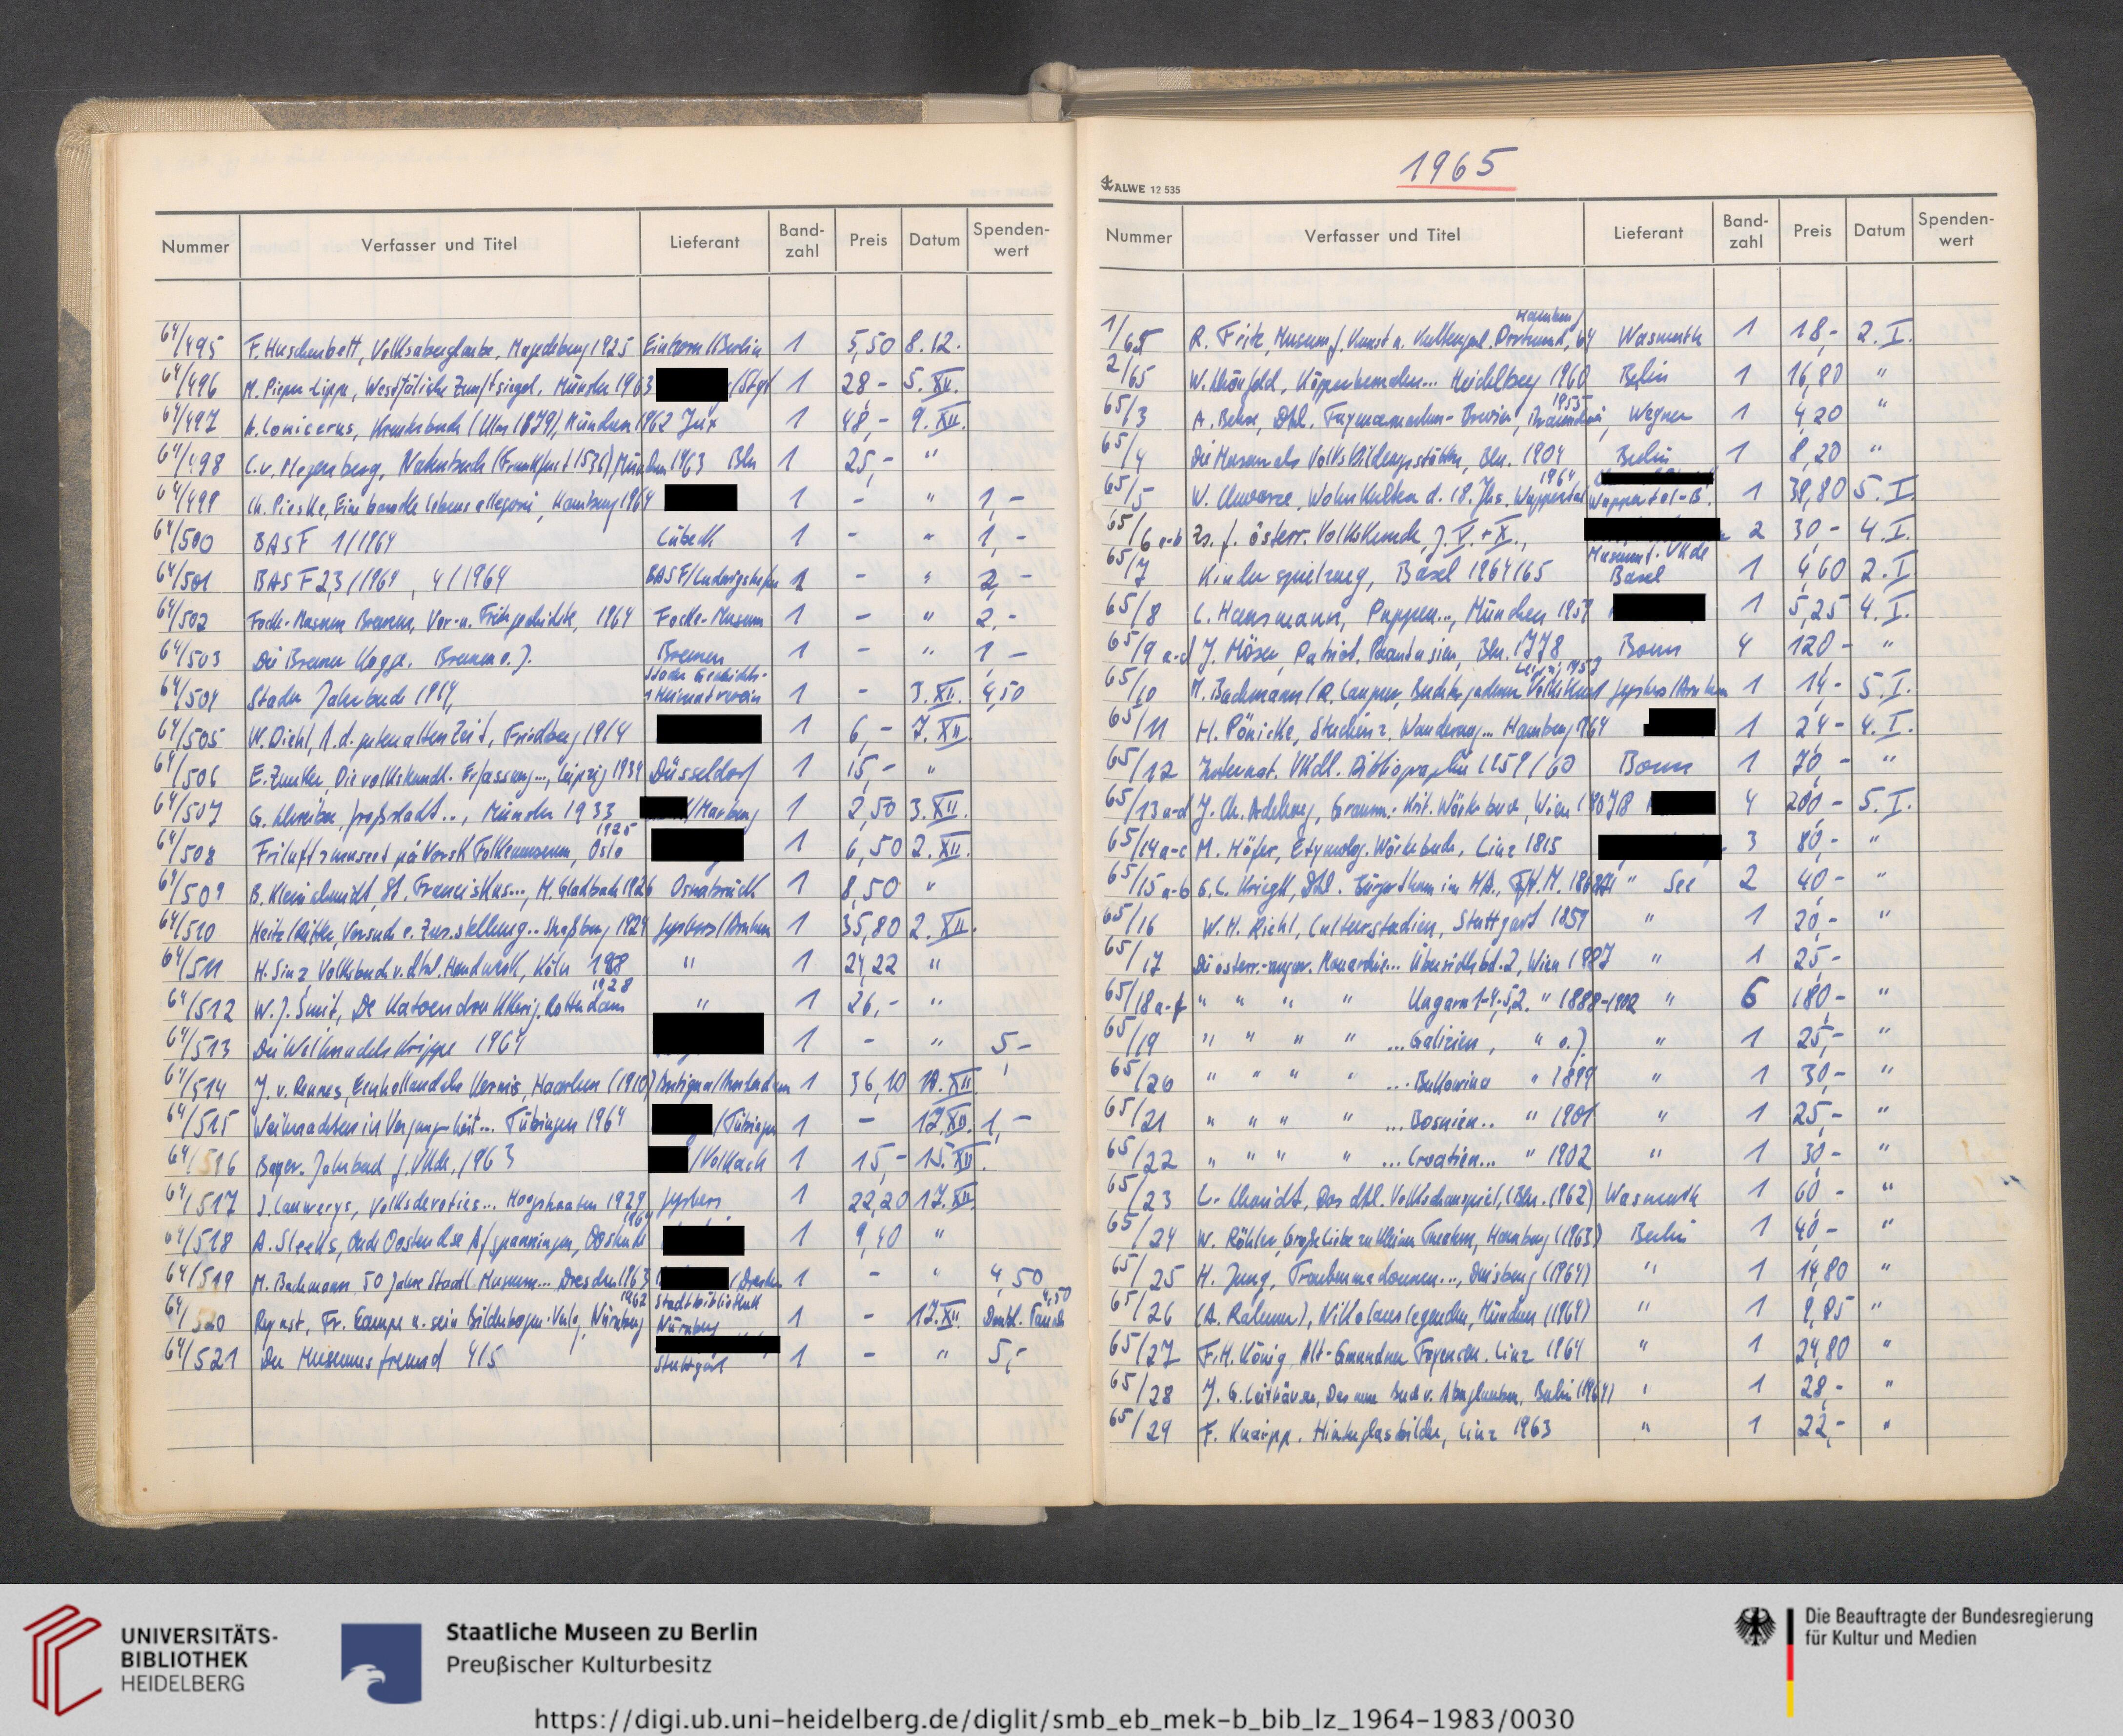 Nummer Verfasser und Titel Lieferant Band-zahl Preis Datum Spenden-wert
64/495 F. Huschenbett, Volksaberglaube, Magdeburg 1925 Einhorn/Berlin 1 5,50 8.12.
64/496 M. Pieper-Lippe, Westfälische Zunftsiegel, Münster 1963 /Stgt 1 28,- 5.XII.
64/497 A. Lonicerus, Kreuterbuch (Ulm 1679), München 1962 Jux 1 48,- 9.XII.
64/498 C. v. Megenberg, Naturbuch (Frankfurt 1536) München 1963 Bln 1 25,- "
64/499 Ch. Pieske, Eine barocke Lebensallegorie, Hamburg 1964 1 - " 1,-
64/500 BASF 1/1964 Lübeck 1 - " 1,-
64/501 BASF 2,3/1964, 4/1964 BASF/Ludwigshafen 2 - " 2,-
64/502 Focke-Museum Bremen, Vor- u. Frühgeschichte, 1964 Focke-Museum 1 - " 2,-
64/503 Die Bremer Kogge. Bremen o. J. Bremen 1 - " 1,-
64/504 Stader Jahrbuch 1964, Stader Geschichts- u. Heimatverein 1 - 3.XII. 4,50
64/505 W. Diehl, A. d. guten alten Zeit, Friedberg 1914 1 6,- 7.XII.
64/506 E. , Die volkskundl. Erfassung..., Leipzig 1934 Düsseldorf 1 15,- "
64/507 G. Schreiber, Großstadt.., Münster 1933 /Marburg 1 2,50 3.XII.
64/508 Friluftsmuseet på Norsk Folkemuseum, Oslo 1925 1 6,50 2.XII.
64/509 B. Kleinschmidt, St. Franciskus..., M. Gladbach 1926 Osnabrück 1 8,50 "
64/510 Heitz/Ritter, Versuch e. Zus.stellung.. Straßburg 1924 Gysbers/Arnhem 1 35,80 2.XII.
64/511 H. Sinz, Volksbuch v. dtn. Handwerk, Köln " 1 24,22 "
64/512 W. J. Smit, De Katoendrukkerij. Rotterdam 1928 " 1 26,- "
64/513 Die Weihnachtskrippe 1964 1 - " 5,-
64/514 J. v. Rennes, Een hollandsche Kermis, Haarlem (1910) Antiqua/Amsterdam 1 36,10 10.XII
64/515 Weihnachten in Vergangenheit... Tübingen 1964 /Tübingen 1 - 12.XII. 1,-
64/516 Bayer. Jahrbuch f. Vkde. 1963 /Volkach 1 15,- 15.XII.
64/517 J. Lauwerys, Volksdevoties... Hoogstraaten 1929 Gysbers 1 22,20 17.XII.
64/518 A. Sleeks, Oude Oostendse Afspanningen, Oostende 1964 1 9,40 "
64/519 M. Bachmann, 50 Jahre Staatl. Museum... Dresden 1963 /Dresden 1 - " 4,50
64/520 Rypast, Fr. Campe u. sein Bilderbogen-Verlag, Nürnberg 1962 Stadtbibliothek Nürnberg 1 - 17.XII. Dubl. Tausch 4,50
64/521 Der Museumsfreund 4/5 Stuttgart 1 - " 5,-
ALWE 12 535
1965
Nummer Verfasser und Titel Lieferant Band-zahl Preis Datum Spenden-wert
1/65 R. Fritz, Museum f. Kunst u. Kulturgesch. Dortmund, Hamburg 64 Wasmuth 1 18,- 2.I.
2/65 W. Schönfeld, Körperbemalen... Heidelberg 1960 Berlin 1 16,80 "
65/3 A. Behse, Dtl. Fayencemarken-Brevier, Braunschweig 1955 Wegner 1 4,20 "
65/4 Die Museen als Volksbildungsstätten, Bln. 1904 Berlin 1 8,20 "
65/5 W. Schwarze, Wohnkultur d. 18. Jhs. Wuppertal 1964 Wuppertal-B. 1 38,80 5.I.
65/6 a-b Zs. f. österr. Volkskunde, J. V. + X., 2 30,- 4.I.
65/7 Kinderspielzeug, Basel 1964/65 Museum f. Vkde Basel 1 4,60 2.I
65/8 C. Hansmann, Puppen..., München 1959 1 5,25 4.I.
65/9 a-d J. Möser, Patriot. Phantasien, Bln. 1778 Bonn 4 120,- "
65/10 M. Bachmann/R. Langner, Berchtesgadener Volkskunst Leipzig 1957 Gysbers/Arnhem 1 14,- 5.I.
65/11 H. Pönicke, Studien z. Wanderung... Hamburg 1964 1 24,- 4.I.
65/12 Internat. Vkdl. Bibliographie 1959/60 Bonn 1 70,- "
65/13 a-d J. Ch. Adelung, Gramm.-krit. Wörterbuch, Wien 1807/8 4 200,- 5.I.
65/14 a-c M. Höfer, Etymolog. Wörterbuch, Linz 1815 3 80,- "
65/15 a-b G. L. Kriegk, Dtl. Bürgerthum im MA., Ff/M. 1868/71 " See 2 40,- "
65/16 W. H. Riehl, Culturstudien, Stuttgart 1859 " 1 20,- "
65/17 Die österr.-ungar. Monarchie... Übersichtsbd. 2, Wien 1887 " 1 25,- "
65/18 a-f " " " " Ungarn 1-4, 5,2. " 1888-1902 " 6 180,- "
65/19 " " " " ...Galizien, " o. J. " 1 25,- "
65/20 " " " " ...Bukowina " 1899 " 1 30,- "
65/21 " " " " ...Bosnien.. " 1901 " 1 25,- "
65/22 " " " " ...Croatien... " 1902 " 1 30,- "
65/23 L. Schmidt, Das dtl. Volksschauspiel, (Bln. 1962) Wasmuth 1 60,- "
65/24 W. Röhler, Große Liebe zu kleinen Theatern, Hamburg (1963) Berlin 1 40,- "
65/25 H. Jung, Traubenmadonnen..., Duisburg (1964) " 1 14,80 "
65/26 (A. Rahmer), Nikolauslegenden, München (1964) " 1 9,85 "
65/27 F. H. König, Alt-Gmundner Fayencen. Linz 1964 " 1 24,80 "
65/28 J. G. Leithäuser, Das neue Buch v. Aberglauben, Berlin (1964) " 1 28,- "
65/29 F. Knaipp. Hinterglasbilder, Linz 1963 " 1 22,- "
UNIVERSITÄTS-
BIBLIOTHEK
HEIDELBERG
Staatliche Museen zu Berlin
Preußischer Kulturbesitz
Die Beauftragte der Bundesregierung
für Kultur und Medien
https://digi.ub.uni-heidelberg.de/diglit/smb_eb_mek-b_bib_lz_1964-1983/0030